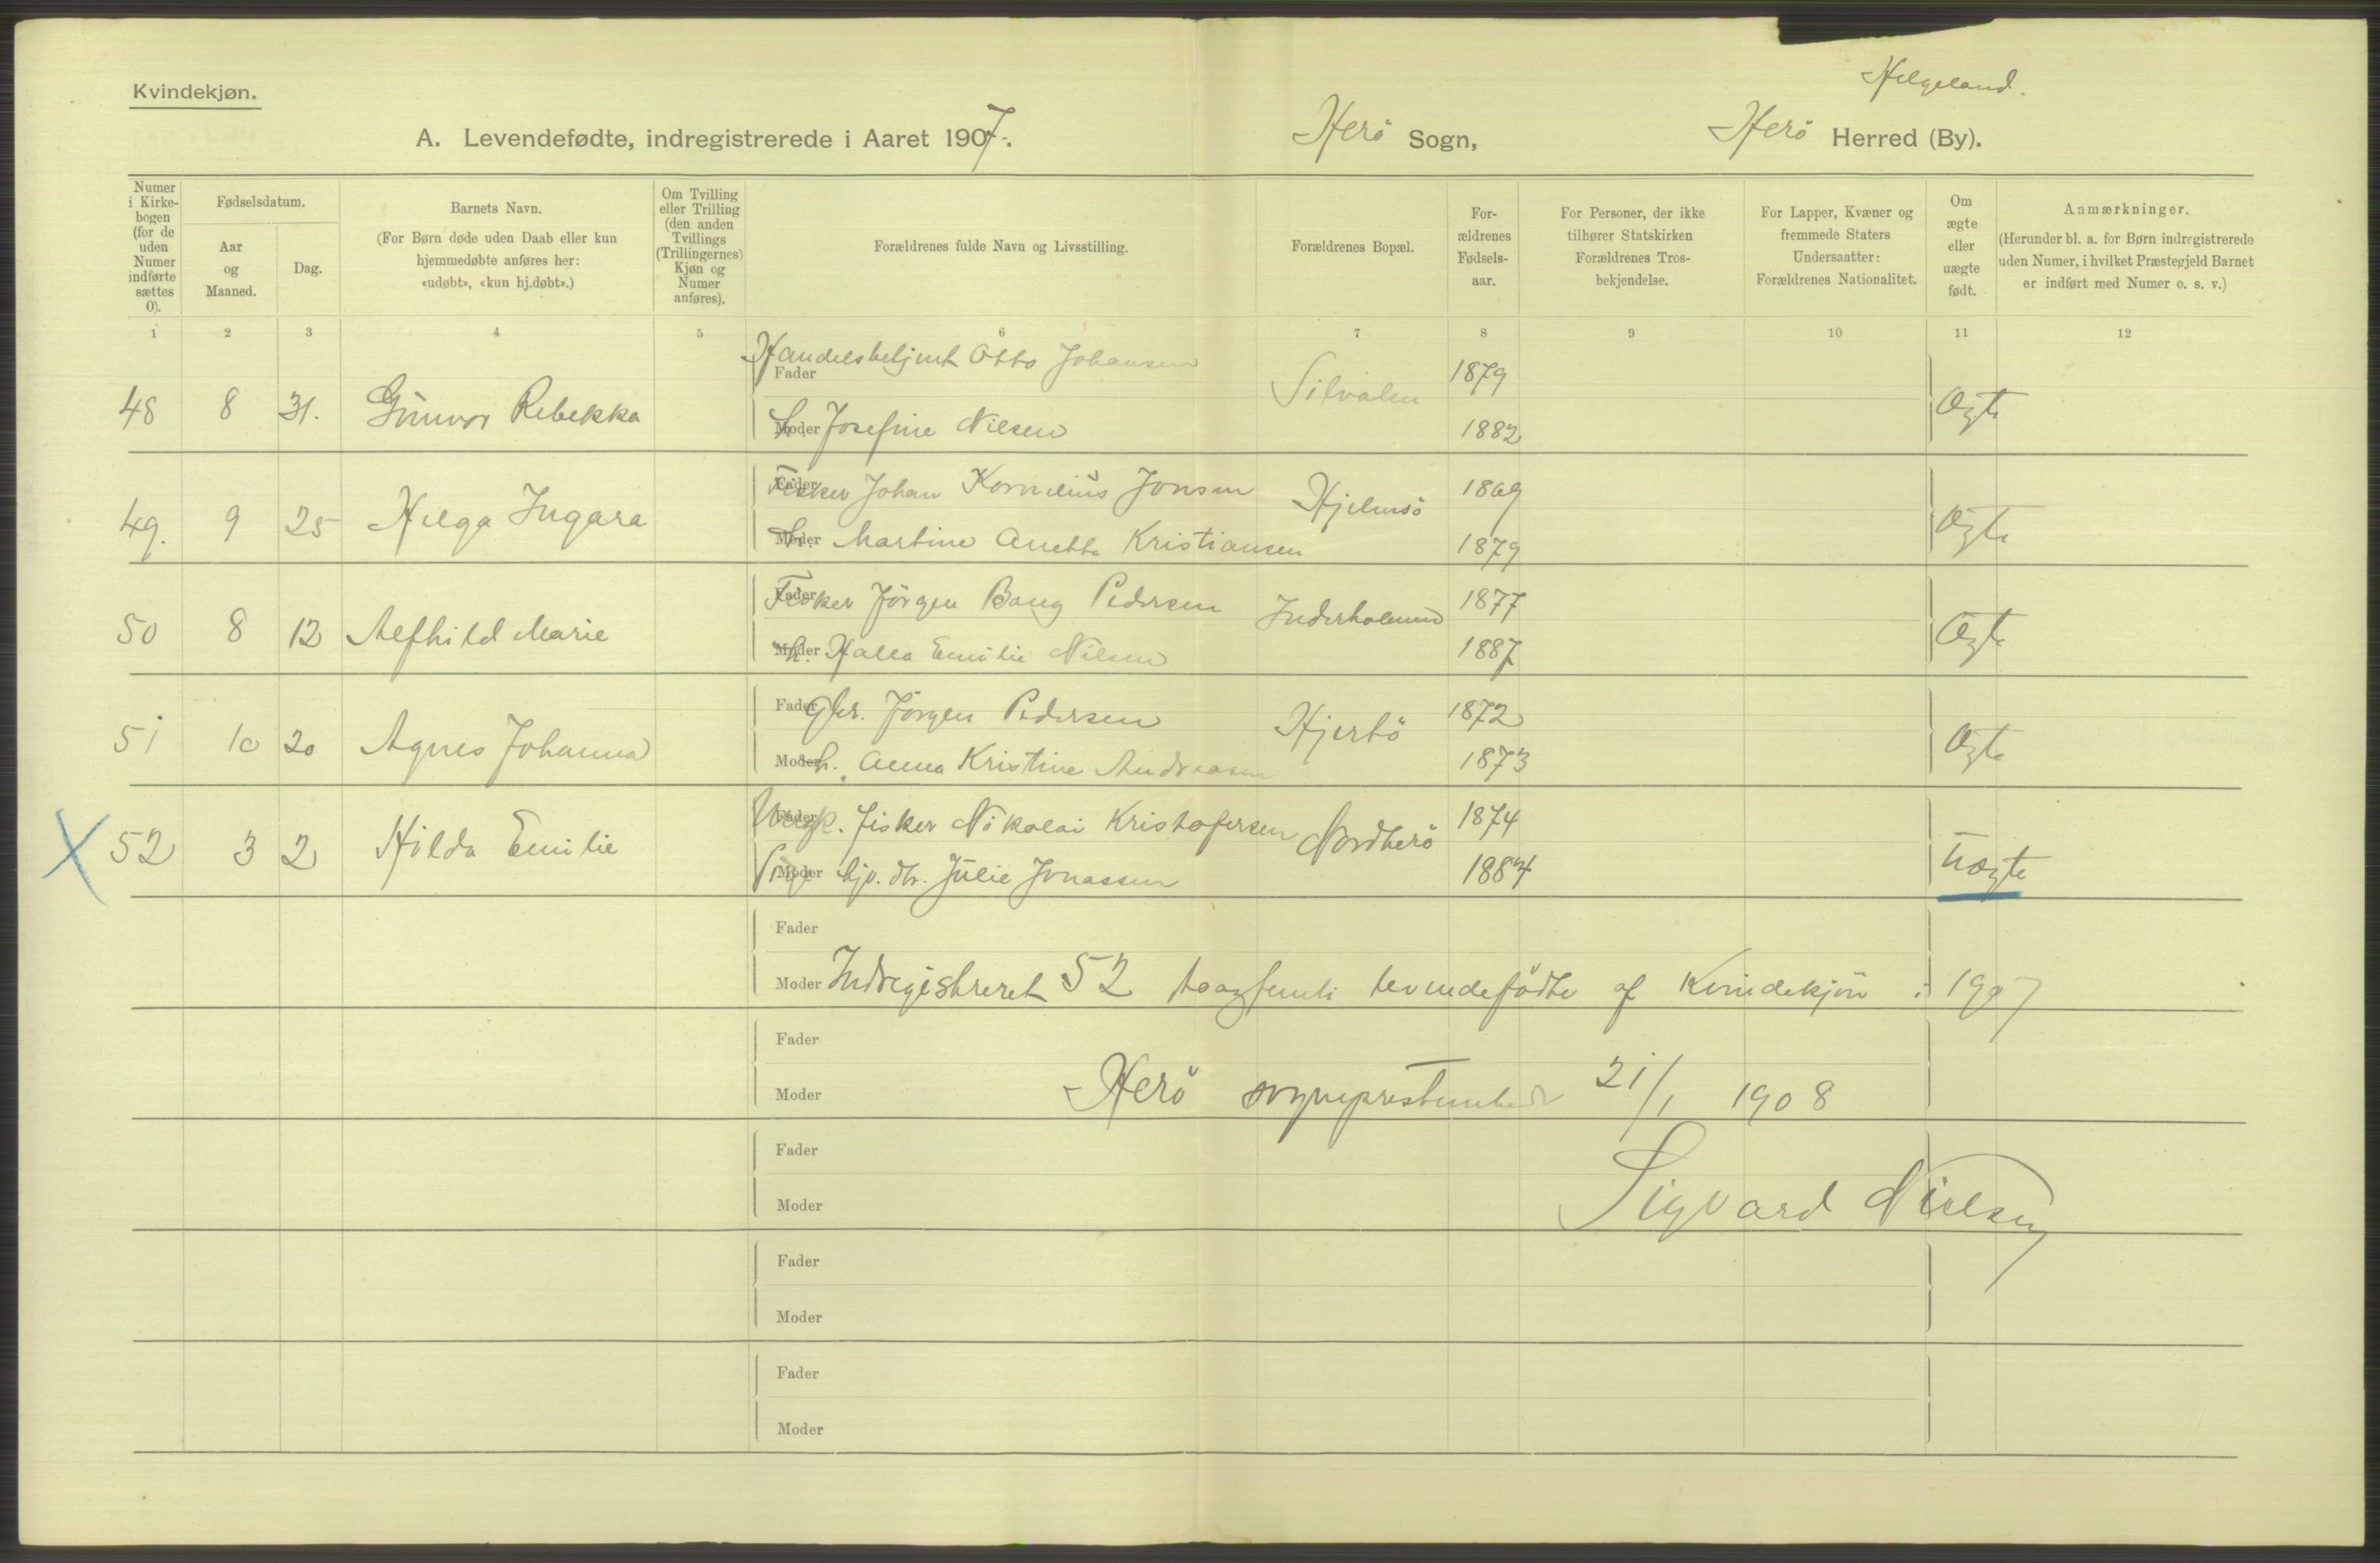 Kvindekjøn.
Helgeland.
A. Levendefødte, indregistrerede i Aaret 1907. Herö Sogn, Herö Herred (By).
Numer i Kirkebogen (for de uden Numer indførte sættes 0).
Fødselsdatum.
Aar og Maaned.
Dag.
Barnets Navn.
(For Børn døde uden Daab eller kun hjemmedøbte anføres her: «udøbt», «kun hj.døbt».)
Om Tvilling eller Trilling (den anden Tvillings (Trillingernes) Kjøn og Numer anføres).
Forældrenes fulde Navn og Livsstilling.
Forældrenes Bopæl.
For-ældrenes Fødsels-aar.
For Personer, der ikke tilhører Statskirken Forældrenes Tros-bekjendelse.
For Lapper, Kvæner og fremmede Staters Undersaatter: Forældrenes Nationalitet.
Om ægte eller uægte født.
Anmærkninger.
(Herunder bl. a. for Børn indregistrerede uden Numer, i hvilket Præstegjeld Barnet er indført med Numer o. s. v.)
1 2 3 4 5 6 7 8 9 10 11 12
48 8 31. Gunvor Rebekka Fader Handelsbetjent Otto Johansen Silvalen 1879 Ægte
Moder h. Josefine Nilsen 1882
49. 9 25 Helga Ingara Fader Fisker Johan Kornelius Jonsen Hjelmsö 1869 Ægte
Moder h. Martine Anette Kristiansen 1879
50 8 12 Alfhild Marie Fader Fisker Jörgen Bang Pedersen Inderholmen 1877 Ægte
Moder h. Halla Emilie Nilsen 1887
51 10 20 Agnes Johanna Fader Gbr. Jörgen Pedersen Hjertö 1872 Ægte
Moder h. Anna Kristine Andreasen 1873
X 52 3 2 Hilda Emilie Fader Ungk. fisker Nikolai Kristofersen Nordherö 1874 uægte
Moder Pige hjv. dtr. Julie Jonassen 1884
Fader
Moder Indregistreret 52 toogfemti levendefödte af Kvindekjön i 1907
Fader
Moder Herö sogneprestembede 21/1 1908
Fader
Moder Sigvard Nielsen
Fader
Moder
Fader
Moder